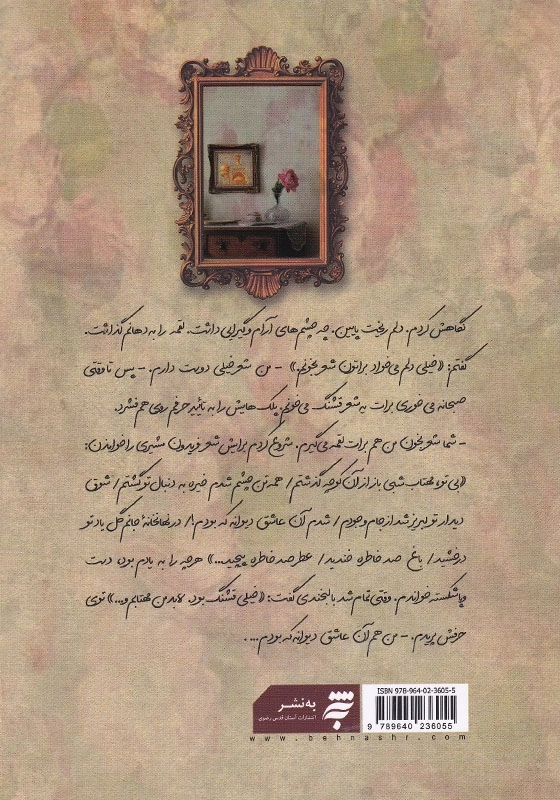 نگاهش کردم. دلم ریخت پایین. چه چشم‌های آرام و گیرایی داشت. لقمه را به دهانم گذاشت.
گفتم: «خیلی دلم می‌خواد براتون شعر بخونم.» - من شعر خیلی دوست دارم. - پس تا وقتی
صبحانه می‌خوری برات یه شعر قشنگ می‌خونم. پلک‌هایش را به تأیید حرفم روی هم فشرد.
- شما شعر بخون من هم برات لقمه می‌گیرم. شروع کردم برایش شعر فریدون مشیری را خواندن:
«بی تو، مهتاب شبی باز از آن کوچه گذشتم/ همه تن چشم شدم خیره به دنبال تو گشتم/ شوق
دیدار تو لبریز شد از جام وجودم/ شدم آن عاشق دیوانه که بودم!/ در نهانخانهٔ جانم گل یاد تو
درخشید/ باغ صد خاطره خندید/ عطر صد خاطره پیچید...» هرچه را به یادم بود، دست
و پا شکسته خواندم. وقتی تمام شد با لبخندی گفت: «خیلی قشنگ بود. لابد من مهتابم و...» توی
حرفش پریدم. - من هم آن عاشق دیوانه که بودم....
به‌نشر
انتشارات آستان قدس رضوی
ISBN 978-964-02-3605-5
9 789640 236055
www.behnashr.com